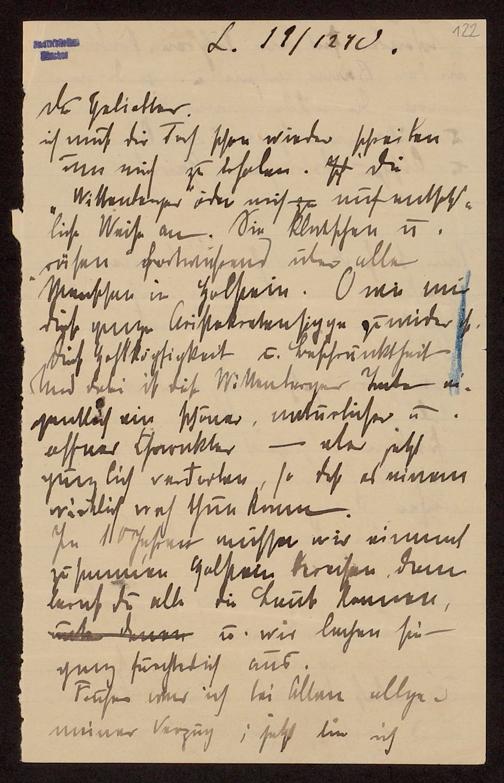 122
L. 19/12 90.
Du Geliebter.
ich muß dir doch schon wieder schreiben
um mich zu erholen. Ist die
„Wittenberger" öden mich auf entsetz-
liche Weise an. Sie klatschen u.
fortwährend über alle
Menschen in Holstein. O wie mir
diese ganze Aristokratensippe zuwider ist.
diese u. Beschränktheit
Und dabei ist die Wittenberger ei-
gentlich ein schöner, natürlicher u.
offner Charakter — aber jetzt
gänzlich verdorben, so daß es einem
wirklich weh thun kann.
In 10 Jahren müssen wir einmal
zusammen Holstein bereisen, dann
lernst du alle die Leute kennen,
u. wir lachen sie
ganz fürchterlich aus.
Früher war ich bei Allen allge-
meiner Verzug; jetzt bin ich